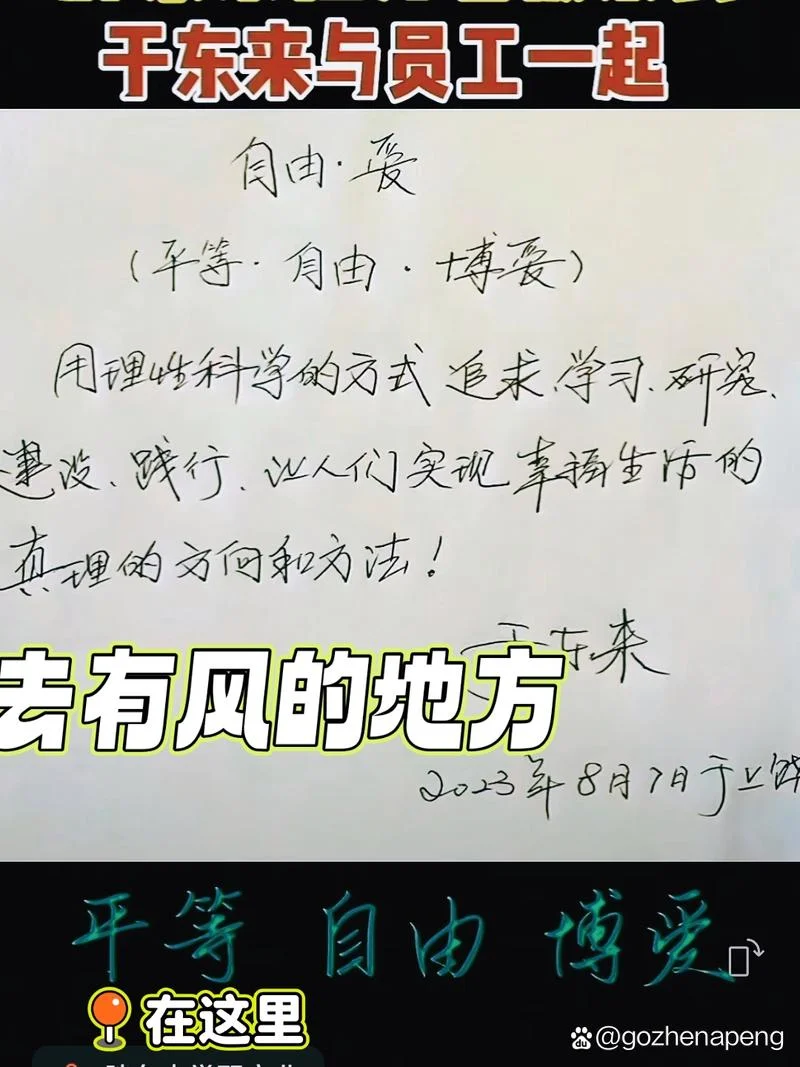 于东来与员工一起
自由·爱
(平等·自由·博爱)
用理性科学的方式追求、学习、研究、
建设、践行、让人们实现幸福生活的
真理的方向和方法!
于东来
去有风的地方
2023年8月7日于上饶
平等 自由 博爱
在这里
@gozhenapeng